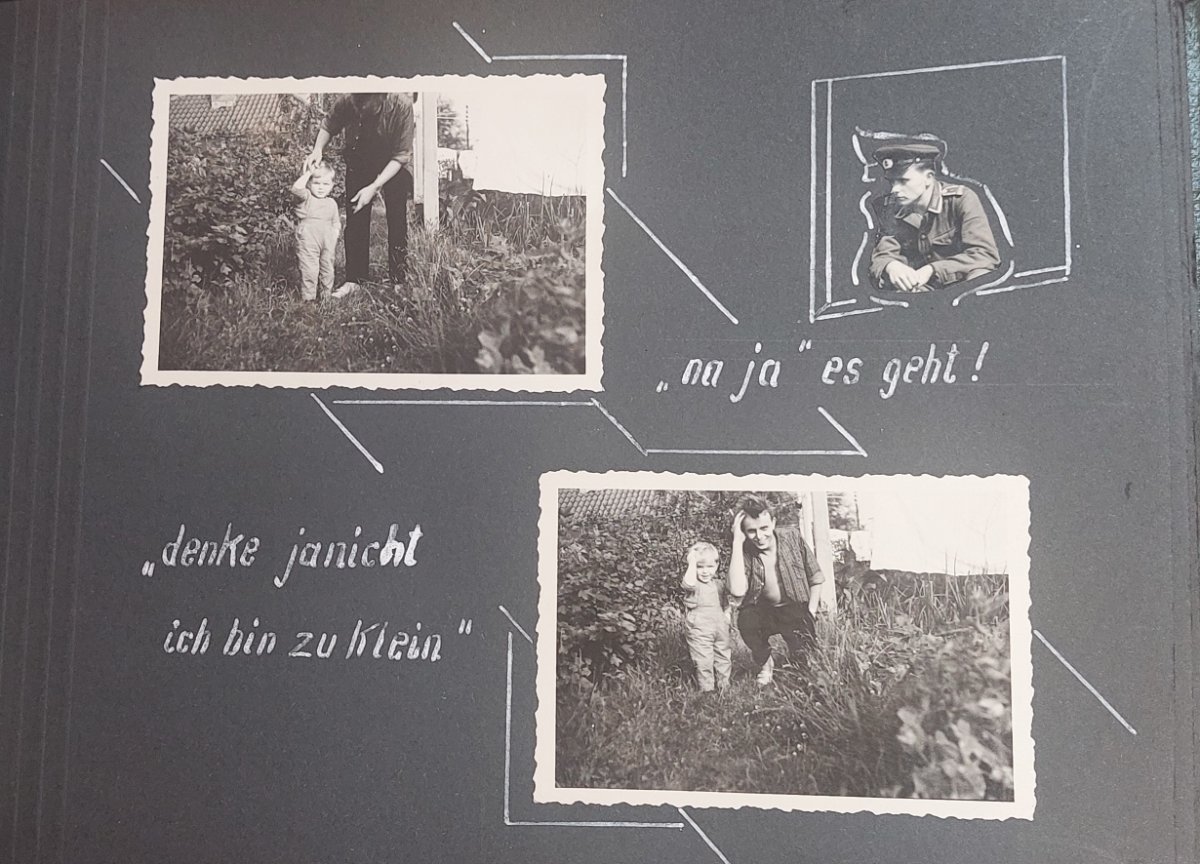 „na ja“ es geht!
„denke janicht
ich bin zu klein“